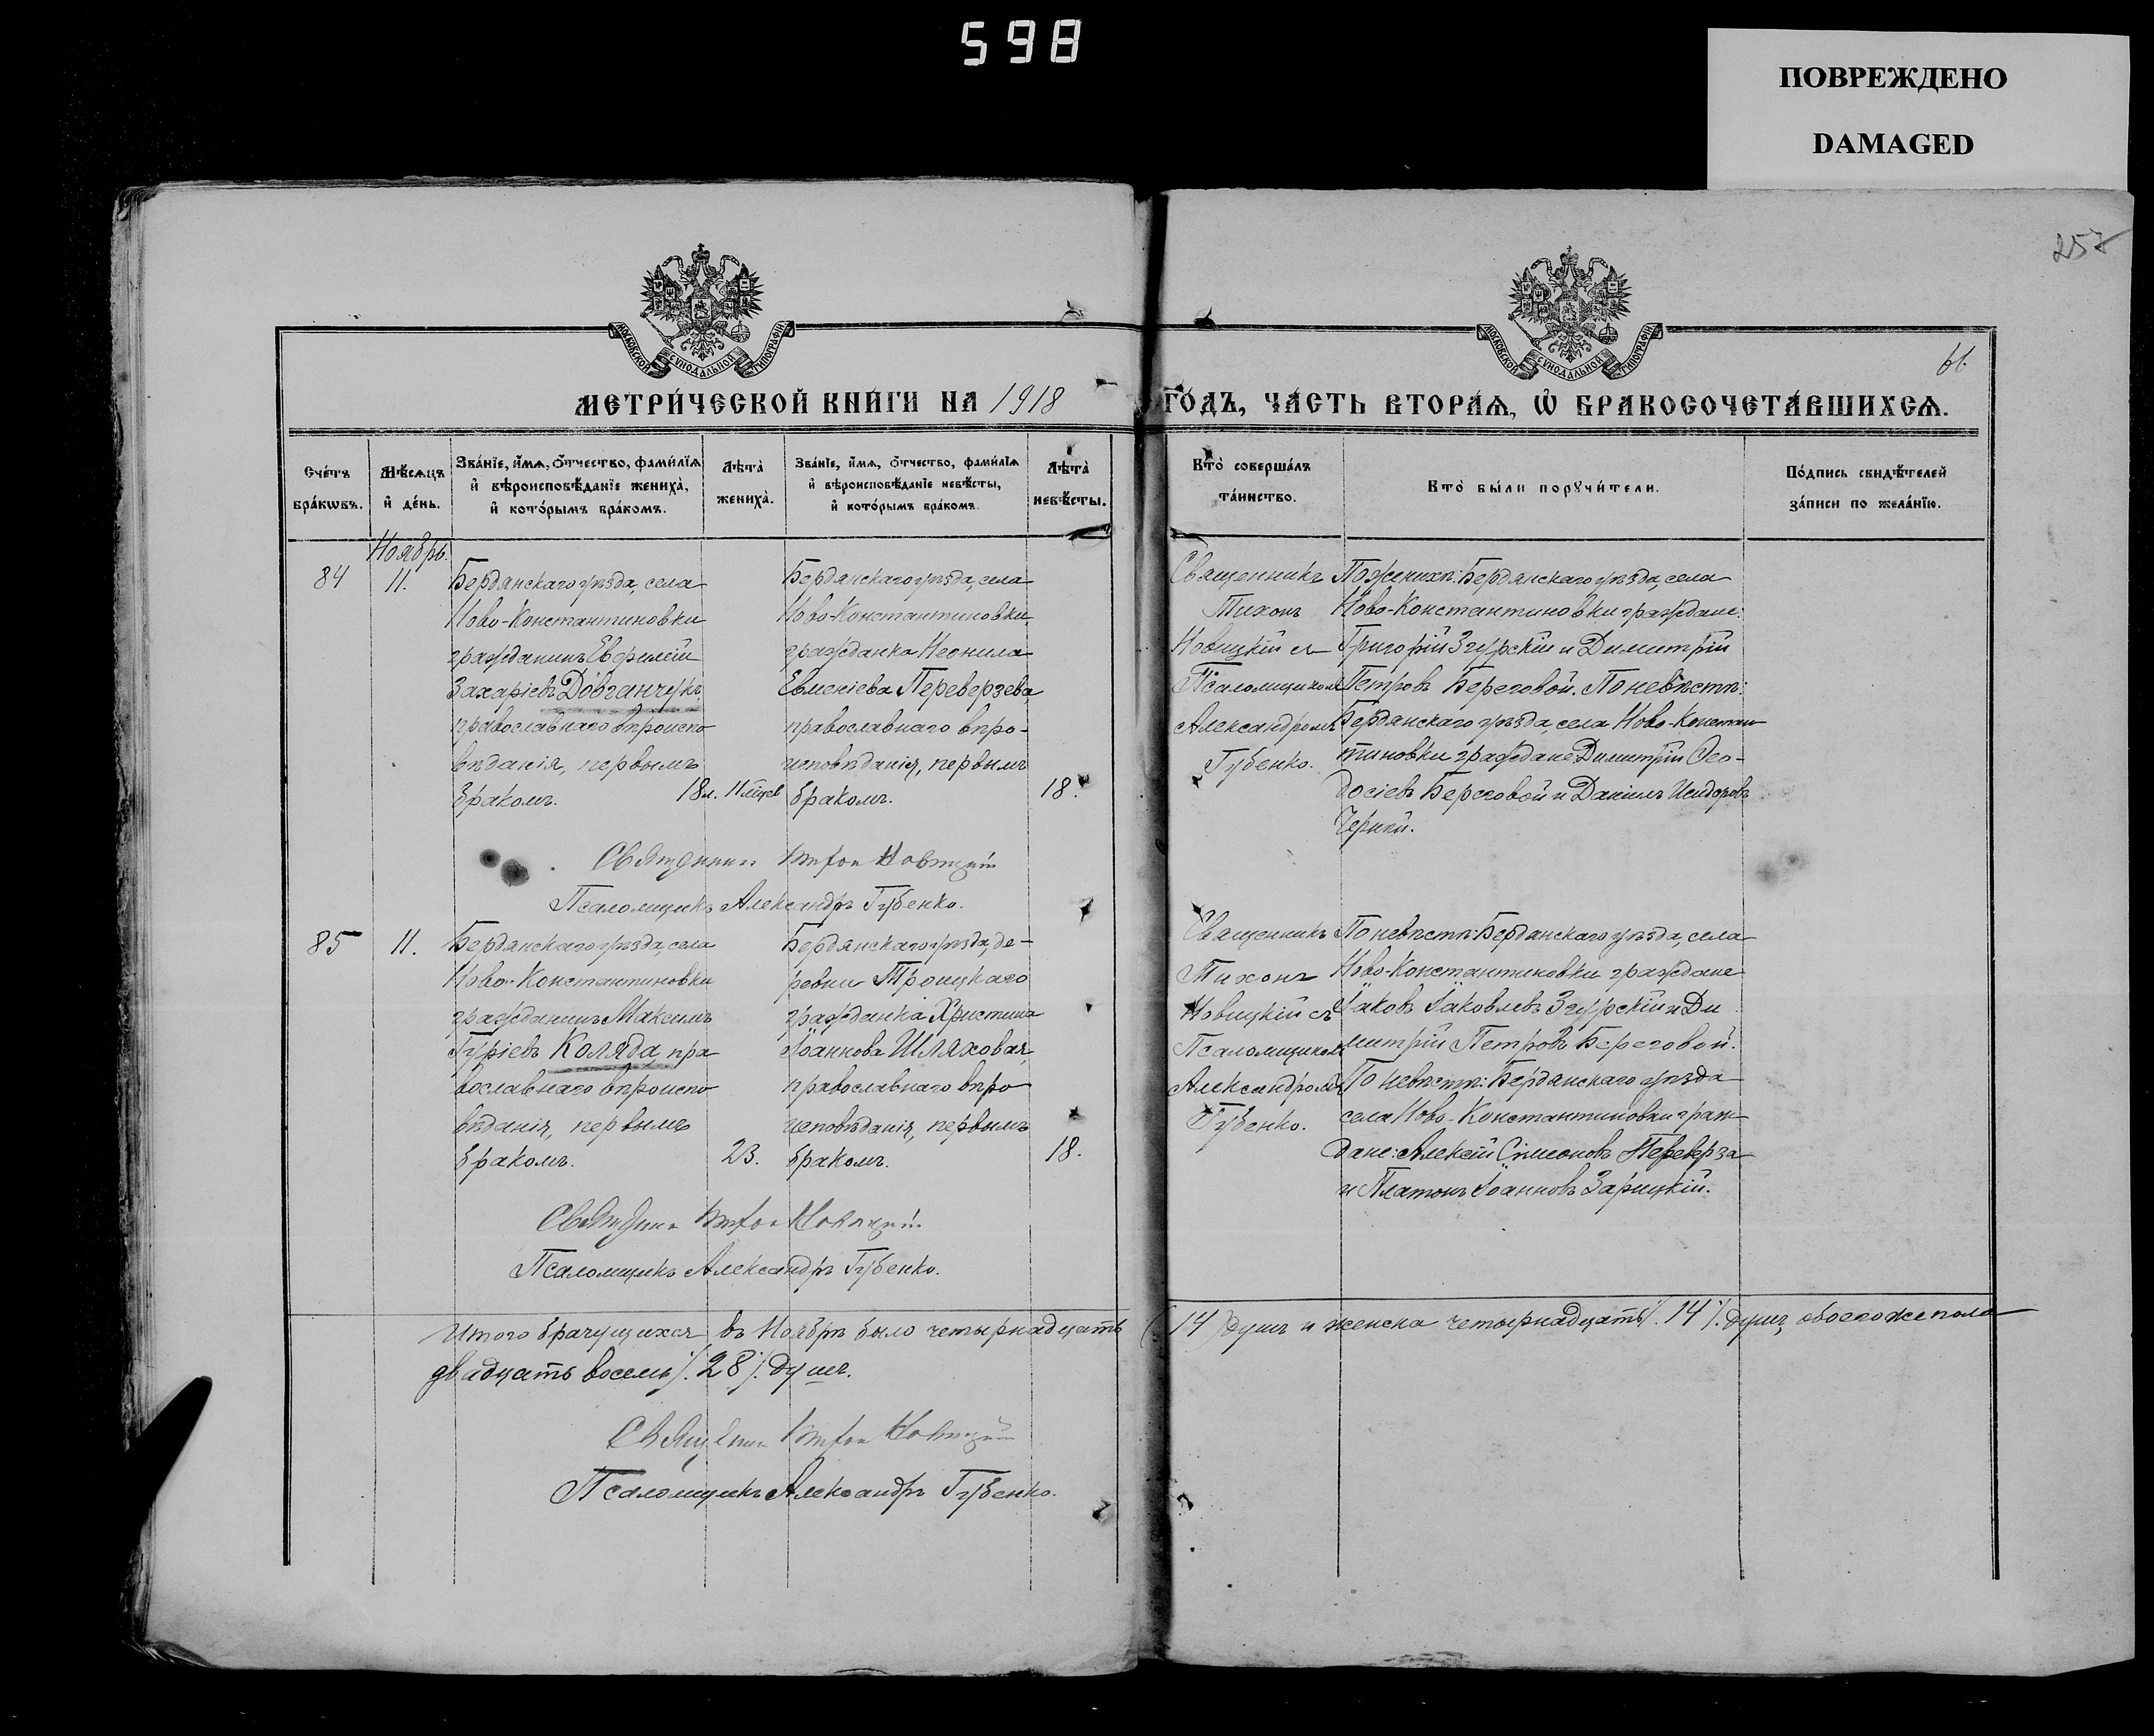 598
ПОВРЕЖДЕНО
DAMAGED
257
61.
МОСКОВСКОЙ СѴНОДАЛЬНОЙ ТИПОГРАФІИ
МОСКОВСКОЙ СѴНОДАЛЬНОЙ ТИПОГРАФІИ
МЕТРИ́ЧЕСКОЙ КНИ́ГИ НА 1918 ГО́ДЪ, ЧА́СТЬ ВТОРА́Ѧ, Ѡ БРАКОСОЧЕТА́ВШИХСѦ.
Сче́тъ бра́кѡвъ.
Мѣ́сѧцъ и҆ де́нь.
Зва́нїе, и҆́мѧ, ѻ҆́тчество, фами́лїѧ и҆ вѣроисповѣ́данїе жениха̀, и҆ кото́рымъ бра́комъ.
Лѣта̀ жениха̀.
Зва́нїе, и҆́мѧ, ѻ҆́тчество, фами́лїѧ и҆ вѣроисповѣ́данїе невѣ́сты, и҆ кото́рымъ бра́комъ.
Лѣта̀ невѣ́сты.
Кто̀ соверша́лъ та́инство.
Кто̀ бы́ли порꙋчи́тели.
По́дпись свидѣ́телей за́писи по жела́нїю.
Ноябрь.
84
11.
Бердянскаго уѣзда, села
Ново-Константиновки
гражданинъ Евфимій
Захаріевъ Довганчукъ
православнаго вѣроиспо
вѣданія, первымъ
бракомъ.
18 л. 11 мѣсев
Бердянскаго уѣзда, села
Ново-Константиновки
гражданка Неонила
Евменіева Переверзева,
православнаго вѣро-
исповѣданія, первымъ
бракомъ.
18.
Священникъ
Тихонъ
Новицкій съ
Псаломщикомъ
Александромъ
Губенко.
По женихѣ: Бердянскаго уѣзда, села
Ново-Константиновки граждане:
Григорій Згурскій и Димитрій
Петровъ Береговой. По невѣстѣ:
Бердянскаго уѣзда, села Ново-Констан
тиновки граждане Димитрій Ѳео-
досіевъ Береговой и Даніилъ Исидоровъ
Черный.
Священникъ Тихон Новицкій
Псаломщикъ Александръ Губенко.
85
11.
Бердянскаго уѣзда, села
Ново-Константиновки
гражданинъ Максимъ
Гуріевъ Коляда, пра
вославнаго вѣроиспо
вѣданія, первымъ
бракомъ.
23.
Бердянскаго уѣзда, де-
ревни Троицкаго
гражданка Христина
Іоаннова Шляховая,
православнаго вѣро
исповѣданія, первымъ
бракомъ.
18.
Священникъ
Тихонъ
Новицкій съ
Псаломщикомъ
Александромъ
Губенко.
По невѣстѣ: Бердянскаго уѣзда, села
Ново-Константиновки граждане
Іаковъ Іаковлевъ Згурскій и Ди
митрій Петровъ Береговой.
По невѣстѣ: Бердянскаго уѣзда
села Ново-Константиновки граж
дане: Алексій Симеоновъ Переверза
и Платонъ Іоанновъ Зарицкій.
Священник Тихон Новицкій
Псаломщикъ Александръ Губенко.
Итого брачущихся въ Ноябрѣ было четырнадцать (14) душъ и женска четырнадцать /. 14 /. душъ, обоего же пола
двадцать восемь /. 28 /. душъ.
Священник Тихон Новицкій
Псаломщикъ Александръ Губенко.